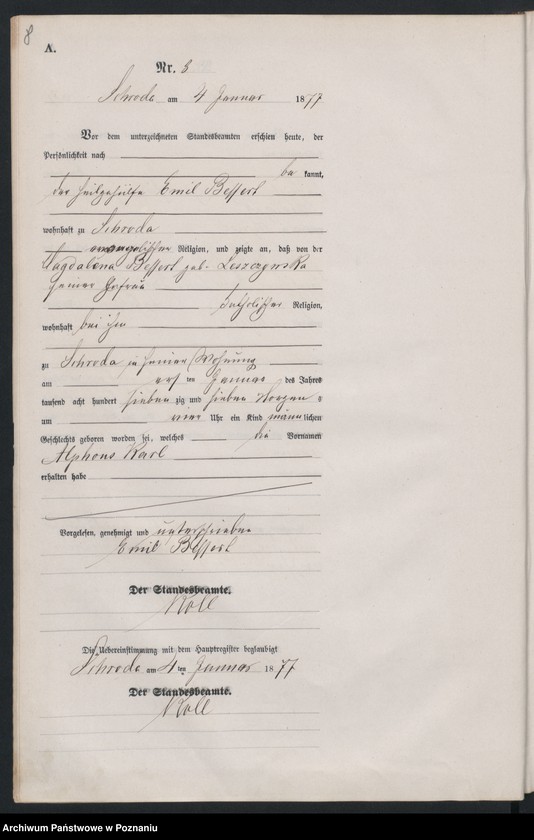 8
A.
Nr. 3
Schroda am 4 Januar 1877
Vor dem unterzeichneten Standesbeamten erschien heute, der
Persönlichkeit nach
be kannt,
der Heilgehülfe Emil Bessert
wohnhaft zu Schroda
evangelischer Religion, und zeigte an, daß von der
Magdalena Bessert geb. Leszczynska
seiner Ehefrau
katholischer Religion,
wohnhaft bei ihm
zu Schroda in seiner Wohnung
am ersten Januar des Jahres
tausend acht hundert sieben zig und sieben Morgens
um vier Uhr ein Kind männlichen
Geschlechts geboren worden sei, welches die Vornamen
Alphons Karl
erhalten habe
Vorgelesen, genehmigt und unterschrieben
Emil Bessert
Der Standesbeamte.
Koll
Die Uebereinstimmung mit dem Hauptregister beglaubigt
Schroda am 4ten Januar 1877
Der Standesbeamte.
Koll
Archiwum Państwowe w Poznaniu